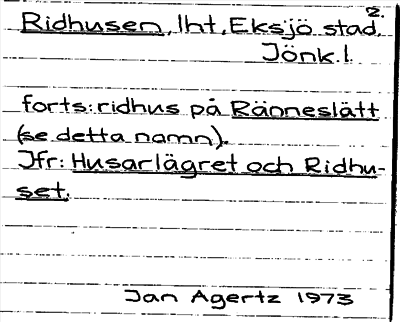 2.
Ridhusen, lht, Eksjö stad,
Jönk. l.
forts: ridhus på Ränneslätt
(se detta namn).
Jfr: Husarlägret och Ridhu-
set.
Jan Agertz 1973